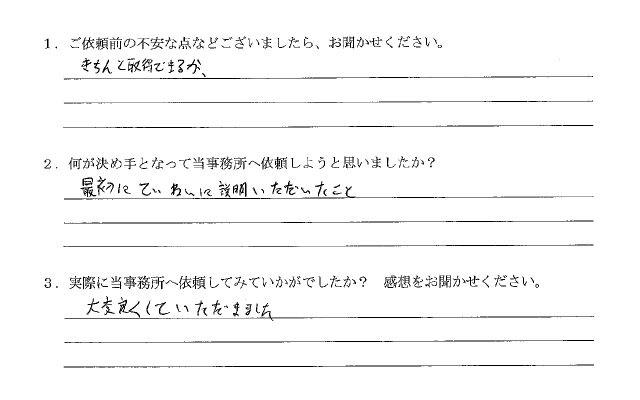 1. ご依頼前の不安な点などございましたら、お聞かせください。
きちんと取得できるか、
2. 何が決め手となって当事務所へ依頼しようと思いましたか？
最初にていねいに説明いただいたこと
3. 実際に当事務所へ依頼してみていかがでしたか？ 感想をお聞かせください。
大変良くしていただきました